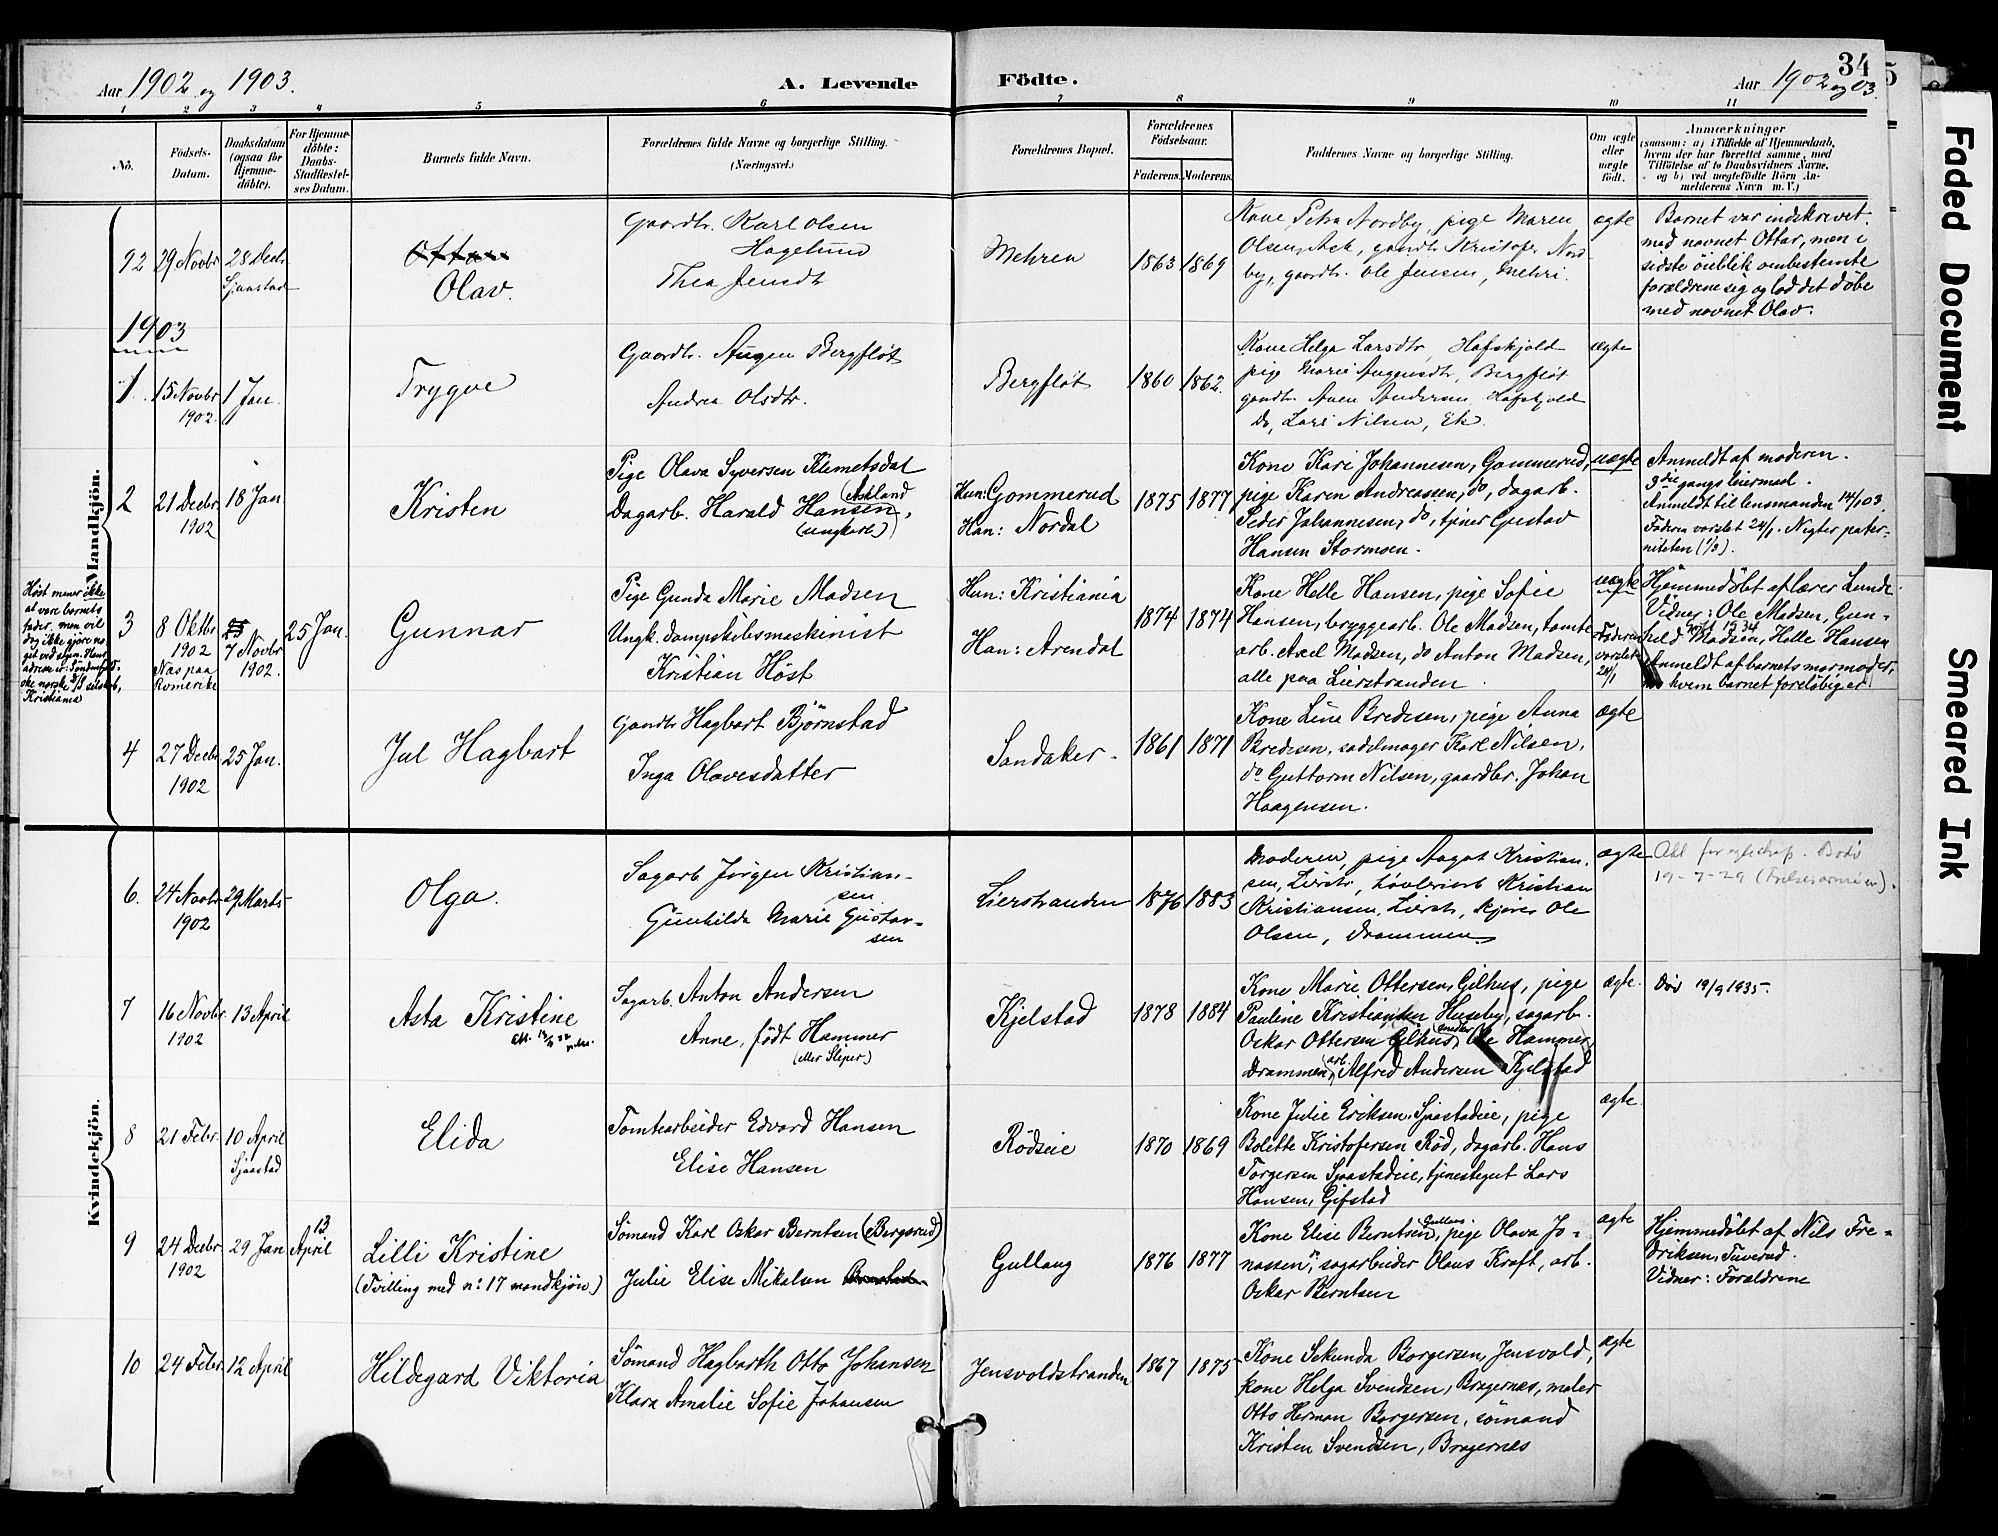 Aar 1902 og 1903.
A. Levende Födte.
Aar 1902 og 03.
34
1 2 3 4 5 6 7 8 9 10 11
No.
Födsels-
Datum.
Daabsdatum
(ogsaa for
Hjemme-
döbte).
For Hjemme-
döbte:
Daabs-
Stadfæstel-
ses Datum.
Barnets fulde Navn.
Forældrenes fulde Navne og borgerlige Stilling.
(Næringsvei.)
Forældrenes Bopæl.
Forældrenes
Födselsaar.
Faderens. Moderens.
Faddernes Navne og borgerlige Stilling.
Om ægte
eller
uægte
födt.
Anmærkninger
(saasom: a) i Tilfælde af Hjemmedaab,
hvem der har forrettet samme, med
Tilföielse af to Daabsvidners Navne,
og b) ved uægtefödte Börn An-
melderens Navn m. V.)
Mandkjön.
92
29 Novbr
28 Decbr
Sjaastad
Ottar
Olav.
Gaardbr. Karl Olsen
Hagelund
Thea Jensdtr
Mehren
1863 1869
Kone Petra Nordby, pige Maren
Olsen, Ask, gaardbr. Kristofer Nord-
by, gaardbr. Ole Jensen, Mehren.
ægte
Barnet var indskrevet
med navnet Ottar, men i
sidste öieblik ombestemte
forældrene sig og lod det döbe
med navnet Olav.
1903
1.
15 Novbr
1902.
1 Jan.
Trygve
Gaardbr. Augen Bergflöt
Andrea Olsdtr.
Bergflöt
1860 1862.
Kone Helga Larsdtr, Hafskjold
pige Marie Augensdtr, Bergflöt
gaardbr. Anen Andersen, Hafskjold
Do, Lars Nilsen, Ek.
ægte
2
21 Decbr
1902
18 Jan.
Kristen
Pige Olava Syversen Klemetsdal
Dagarb. Harald Hansen,
(Askland
(ungkarl)
Hun: Gommerud
Han: Nordal
1875 1877
Kone Kari Johannesen, Gommerud,
pige Karen Andreassen, do, dagarb.
Peder Johannesen, do, tjener Gustav
Hansen Stormoen.
uægte
Anmeldt af moderen.
3die gangs leiermaal.
Anmeldt til lensmanden 14/1 03.
Faderen varslet 24/1. Negter pater-
niteten (1/3).
Höst mener ikke
at være barnets
fader, men vil
dog ikke gjöre no-
get ved sagen. Hans
adresse er: Söndenfjeld-
ske norske D/S selskab,
Kristiania
3
8 Oktbr
1902
Næs paa
Romerike
7 Novbr
1902.
25 Jan.
Gunnar
Pige Gunda Marie Madsen
Ungk. dampskibsmaskinist
Kristian Höst
Hun: Kristiania
Han: Arendal
1874 1874
Kone Helle Hansen, pige Sofie
Hansen, bryggearb. Ole Madsen, tomte-
arb. Axel Madsen, do Anton Madsen,
alle paa Lierstranden.
uægte
Faderen
varslet
24/1
Hjemmedöbt af lærer Lunde.
Vidner: Ole Madsen, Gun-
hild Madsen, Helle Hansen
Anmeldt af barnets mormoder,
hos hvem barnet forelöbig er
4
27 Decbr
1902
25 Jan.
Jul Hagbart
Gaardbr Hagbart Björnstad
Inga Olavesdatter
Sandaker.
1861 1871
Kone Line Bredesen, pige Anna
Bredesen, sadelmager Karl Nilsen,
do Guttorm Nilsen, gaardbr. Johan
Haagensen.
ægte
Kvindekjön.
6.
24 Novbr
1902
29 Marts
Olga.
Sagarb Jörgen Kristian-
sen.
Gunhilda Marie Gustav-
sen
Lierstranden
1876 1883
Moderen, pige Aagot Kristian-
sen, Lierstr, hövleriarb Kristian
Kristiansen, Lierstr, kjörer Ole
Olsen, Drammen
ægte
Att. for egteskap. Bodö
19-7-29 (Frelsesarmeen).
7
16 Novbr.
1902
13 April
Asta Kristine
Sagarb. Anton Andersen
Anne, födt Hammer
(eller Sliper)
Kjelstad
1878 1884
Kone Marie Ottersen, Gilhus, pige
Pauline Kristiansen Huseby, sagarb.
Oskar Ottersen Gilhus, smedlær. Ole Hammer,
Drammen, arb. Alfred Andersen Kjelstad
ægte.
Död 19/9 1935.
8
21 Febr.
10 April
Sjaastad
Elida
Tomtearbeider Edvard Hansen
Elise Hansen
Rödseie
1870 1869
Kone Julie Eriksen, Sjaastadeie, pige
Bolette Kristofersen Röd, dagarb. Hans
Torgersen Sjaastadeie, tjenestegut Lars
Hansen, Gifstad
ægte.
9
24 Decbr
1902
29 Jan
13
April
Lilli Kristine
(Tvilling med n: 17 mandkjön.)
Sömand Karl Oskar Berntsen (Bergsrud)
Julie Elise Mikalsen
Gullaug
1876 1877
Kone Elise Berntsen, Gullaug, pige Olava Jo-
nassen, ", sagarbeider Olaus Kraft, arb.
Oskar Berntsen
ægte
Hjemmedöbt af Nils Fre-
driksen, Tuverud.
Vidner: Forældrene
10
24 Febr.
12 April
Hildegard Viktoria
Sömand Hagbarth Otto Johansen
Klara Amalie Sofie Johansen
Jensvoldstranden
1867 1875
Kone Sekunda Borgersen, Jensvold,
kone Helga Svendsen, Bragernes, maler
Otto Herman Borgersen, sömand
Kristen Svendsen, Bragernes
ægte
Faded Document
Smeared Ink